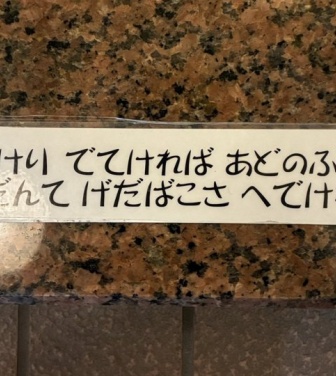 けり でてければ あどのふ
だんて げだばこさ へでけ